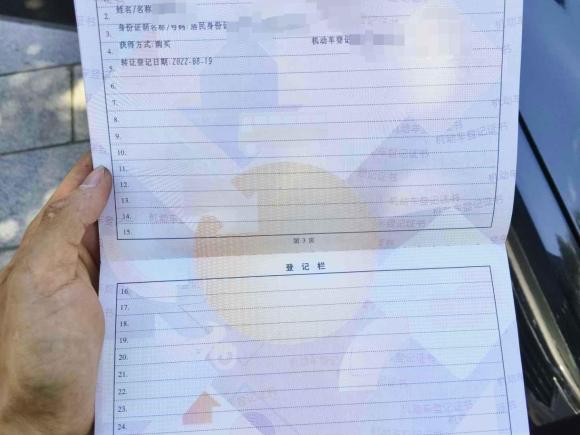 2. 姓名/名称
3. 身份证明名称/号码:居民身份证
4. 获得方式:购买 机动车登记
5. 转让登记日期:2022-08-19
6.
7.
8.
9.
10.
11.
12.
13.
14.
15.
第 3 页
登 记 栏
16.
17.
18.
19.
20.
21.
22.
23.
24.
机动车登记证书